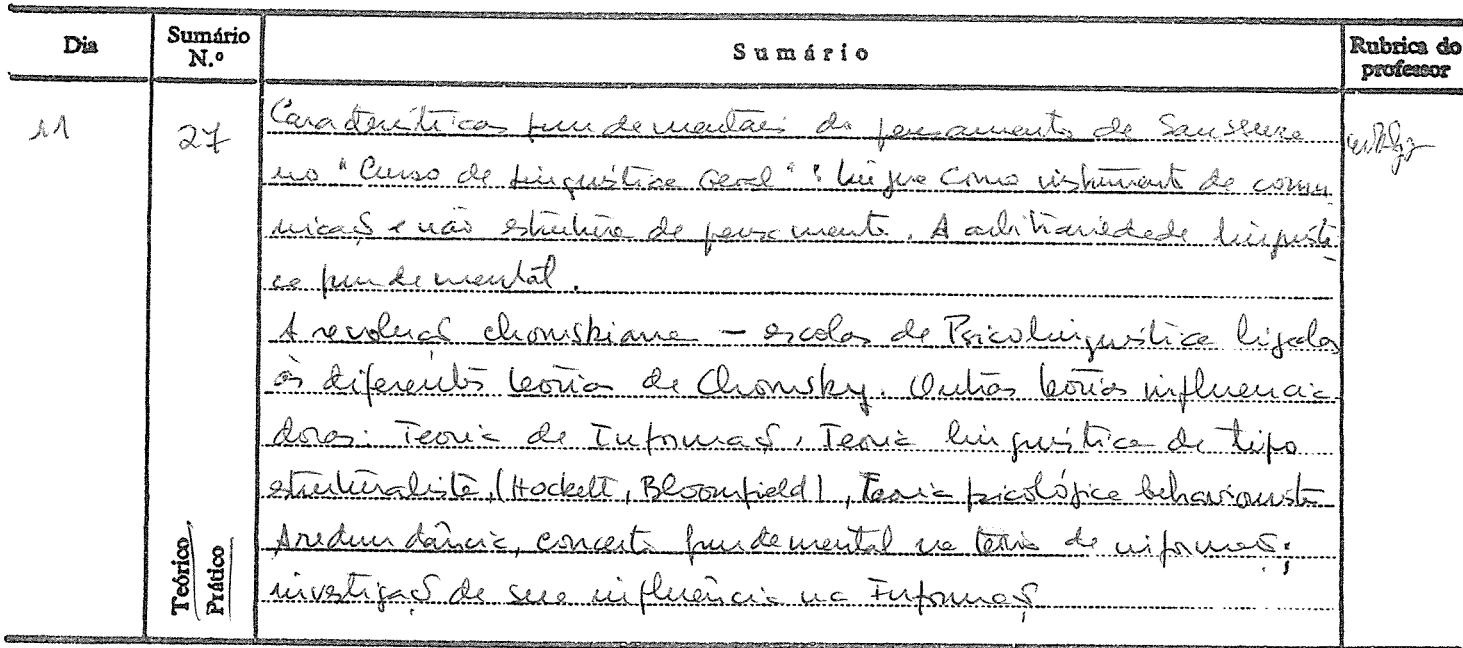 Dia Sumário N.º Sumário Rubrica do professor
11 27
Características fundamentais do pensamento de Saussure
no "Curso de Linguística Geral": língua como instrumento de comu
nicaç e não estrutura de pensamento. A arbitrariedade linguísti
ca fundamental.
A revoluç chomskiana — escolas de Psicolinguística ligadas
às diferentes teorias de Chomsky. Outras teorias influencia
doras: Teoria de Informaç, Teoria linguística de tipo
estruturalista, (Hockett, Bloomfield), Teoria psicológica behaviourista
A redundância, conceito fundamental na teoria de informaç;
investigaç de sua influência na Informaç
Teórico
Prático